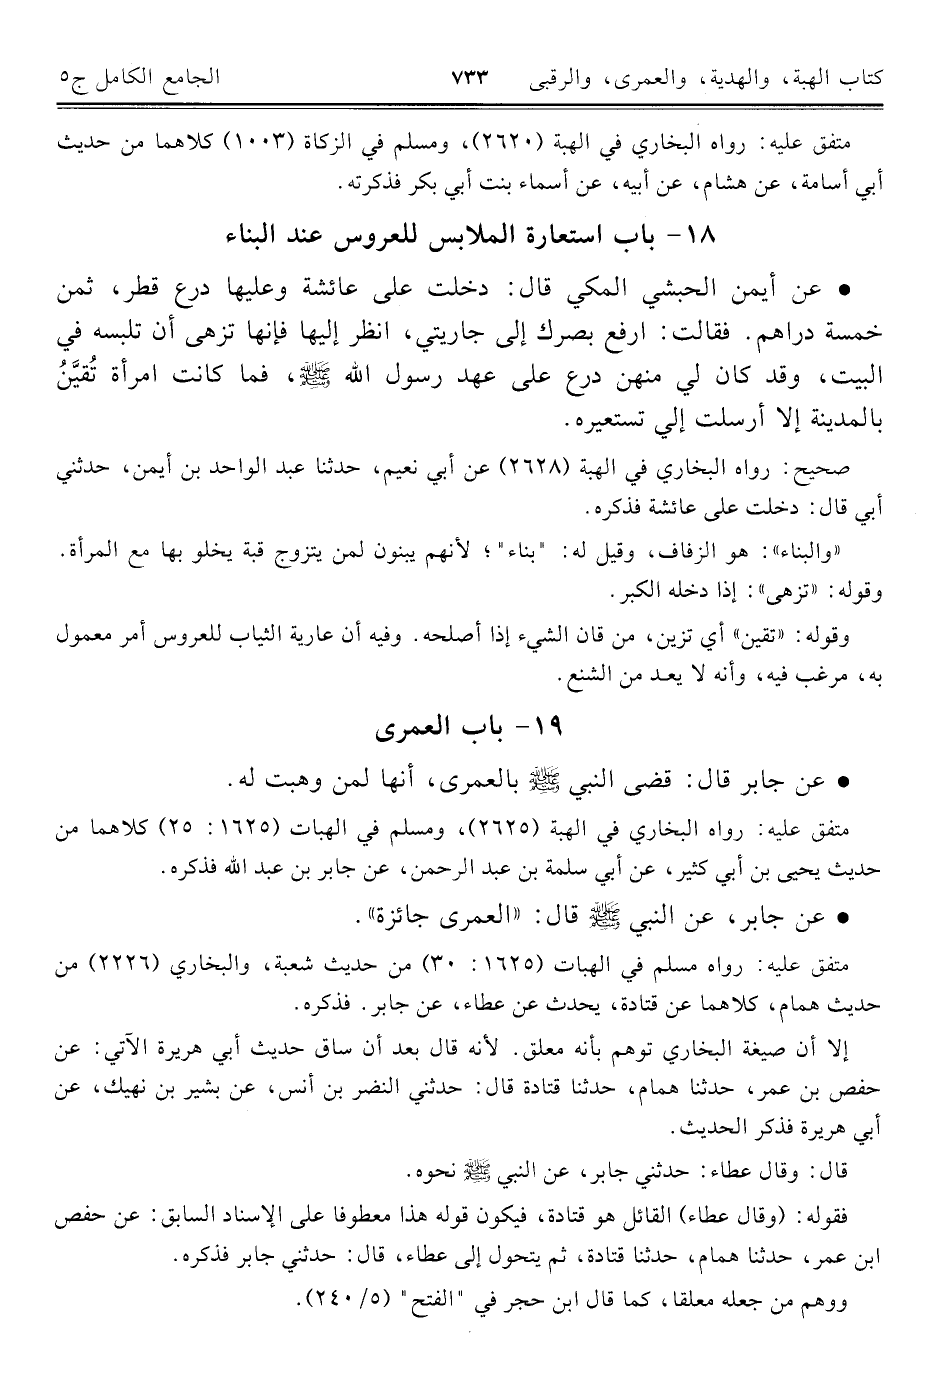 كتاب الهبة، والهدية، والعمرى، والرقبى ٧٣٣ الجامع الكامل ج٥
متفق عليه: رواه البخاري في الهبة (٢٦٢٠)، ومسلم في الزكاة (١٠٠٣) كلاهما من حديث
أبي أسامة، عن هشام، عن أبيه، عن أسماء بنت أبي بكر فذكرته.
١٨- باب استعارة الملابس للعروس عند البناء
• عن أيمن الحبشي المكي قال: دخلت على عائشة وعليها درع قطر، ثمن
خمسة دراهم. فقالت: ارفع بصرك إلى جاريتي، انظر إليها فإنها تزهى أن تلبسه في
البيت، وقد كان لي منهن درع على عهد رسول الله ﷺ، فما كانت امرأة تُقيَّنُ
بالمدينة إلا أرسلت إلي تستعيره.
صحيح: رواه البخاري في الهبة (٢٦٢٨) عن أبي نعيم، حدثنا عبد الواحد بن أيمن، حدثني
أبي قال: دخلت على عائشة فذكره.
«والبناء»: هو الزفاف، وقيل له: "بناء"؛ لأنهم يبنون لمن يتزوج قبة يخلو بها مع المرأة.
وقوله: «تزهى»: إذا دخله الكبر.
وقوله: «تقين» أي تزين، من قان الشيء إذا أصلحه. وفيه أن عارية الثياب للعروس أمر معمول
به، مرغب فيه، وأنه لا يعد من الشنع.
١٩- باب العمرى
• عن جابر قال: قضى النبي ﷺ بالعمرى، أنها لمن وهبت له.
متفق عليه: رواه البخاري في الهبة (٢٦٢٥)، ومسلم في الهبات (١٦٢٥: ٢٥) كلاهما من
حديث يحيى بن أبي كثير، عن أبي سلمة بن عبد الرحمن، عن جابر بن عبد الله فذكره.
• عن جابر، عن النبي ﷺ قال: «العمرى جائزة».
متفق عليه: رواه مسلم في الهبات (١٦٢٥: ٣٠) من حديث شعبة، والبخاري (٢٢٢٦) من
حديث همام، كلاهما عن قتادة، يحدث عن عطاء، عن جابر. فذكره.
إلا أن صيغة البخاري توهم بأنه معلق. لأنه قال بعد أن ساق حديث أبي هريرة الآتي: عن
حفص بن عمر، حدثنا همام، حدثنا قتادة قال: حدثني النضر بن أنس، عن بشير بن نهيك، عن
أبي هريرة فذكر الحديث.
قال: وقال عطاء: حدثني جابر، عن النبي ﷺ نحوه.
فقوله: (وقال عطاء) القائل هو قتادة، فيكون قوله هذا معطوفا على الإسناد السابق: عن حفص
ابن عمر، حدثنا همام، حدثنا قتادة، ثم يتحول إلى عطاء، قال: حدثني جابر فذكره.
ووهم من جعله معلقا، كما قال ابن حجر في "الفتح" (٥/ ٢٤٠).